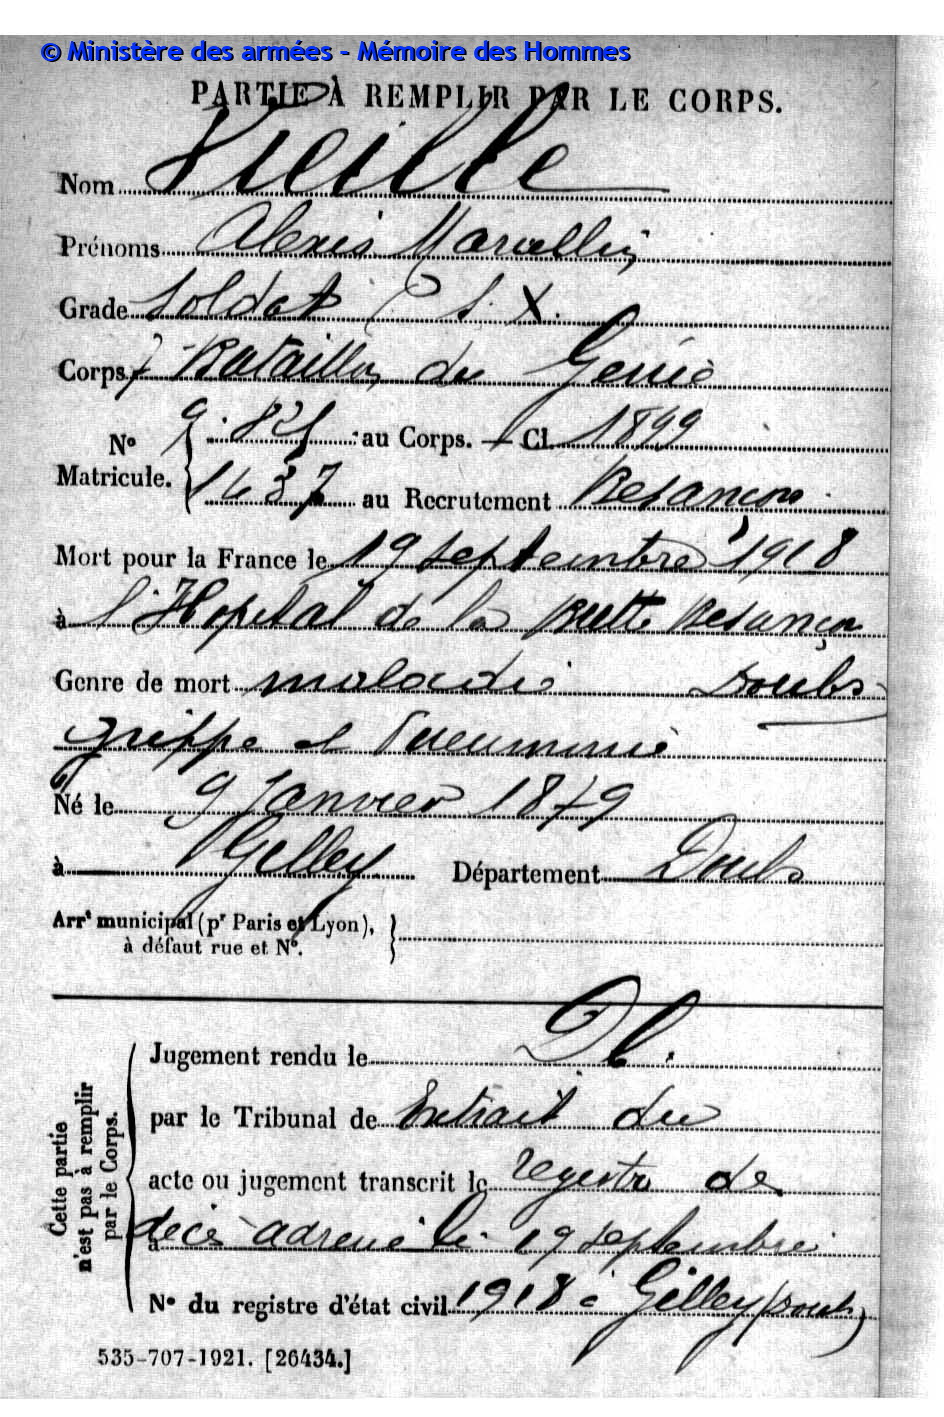 © Ministère des armées - Mémoire des Hommes
PARTIE À REMPLIR PAR LE CORPS.
Nom Vieille
Prénoms Alexis Marcellin
Grade Soldat
Corps 7e Bataillon du Génie
N° Matricule. { 9. au Corps. — Cl. 1899
1637 au Recrutement Besançon
Mort pour la France le 19 septembre 1918
à l'Hopital de la Butte Besançon
Genre de mort maladie Doubs
grippe et Pneumonie
Né le 9 Janvier 1879
à Gilley Département Doubs
Arrt municipal (pr Paris et Lyon), à défaut rue et N°. }
Jugement rendu le
par le Tribunal de Extrait du
acte ou jugement transcrit le registre de
à décès adressé le 19 septembre
N° du registre d'état civil 1918 à Gilley (Doubs)
Cette partie n'est pas à remplir par le Corps.
535-707-1921. [26434.]